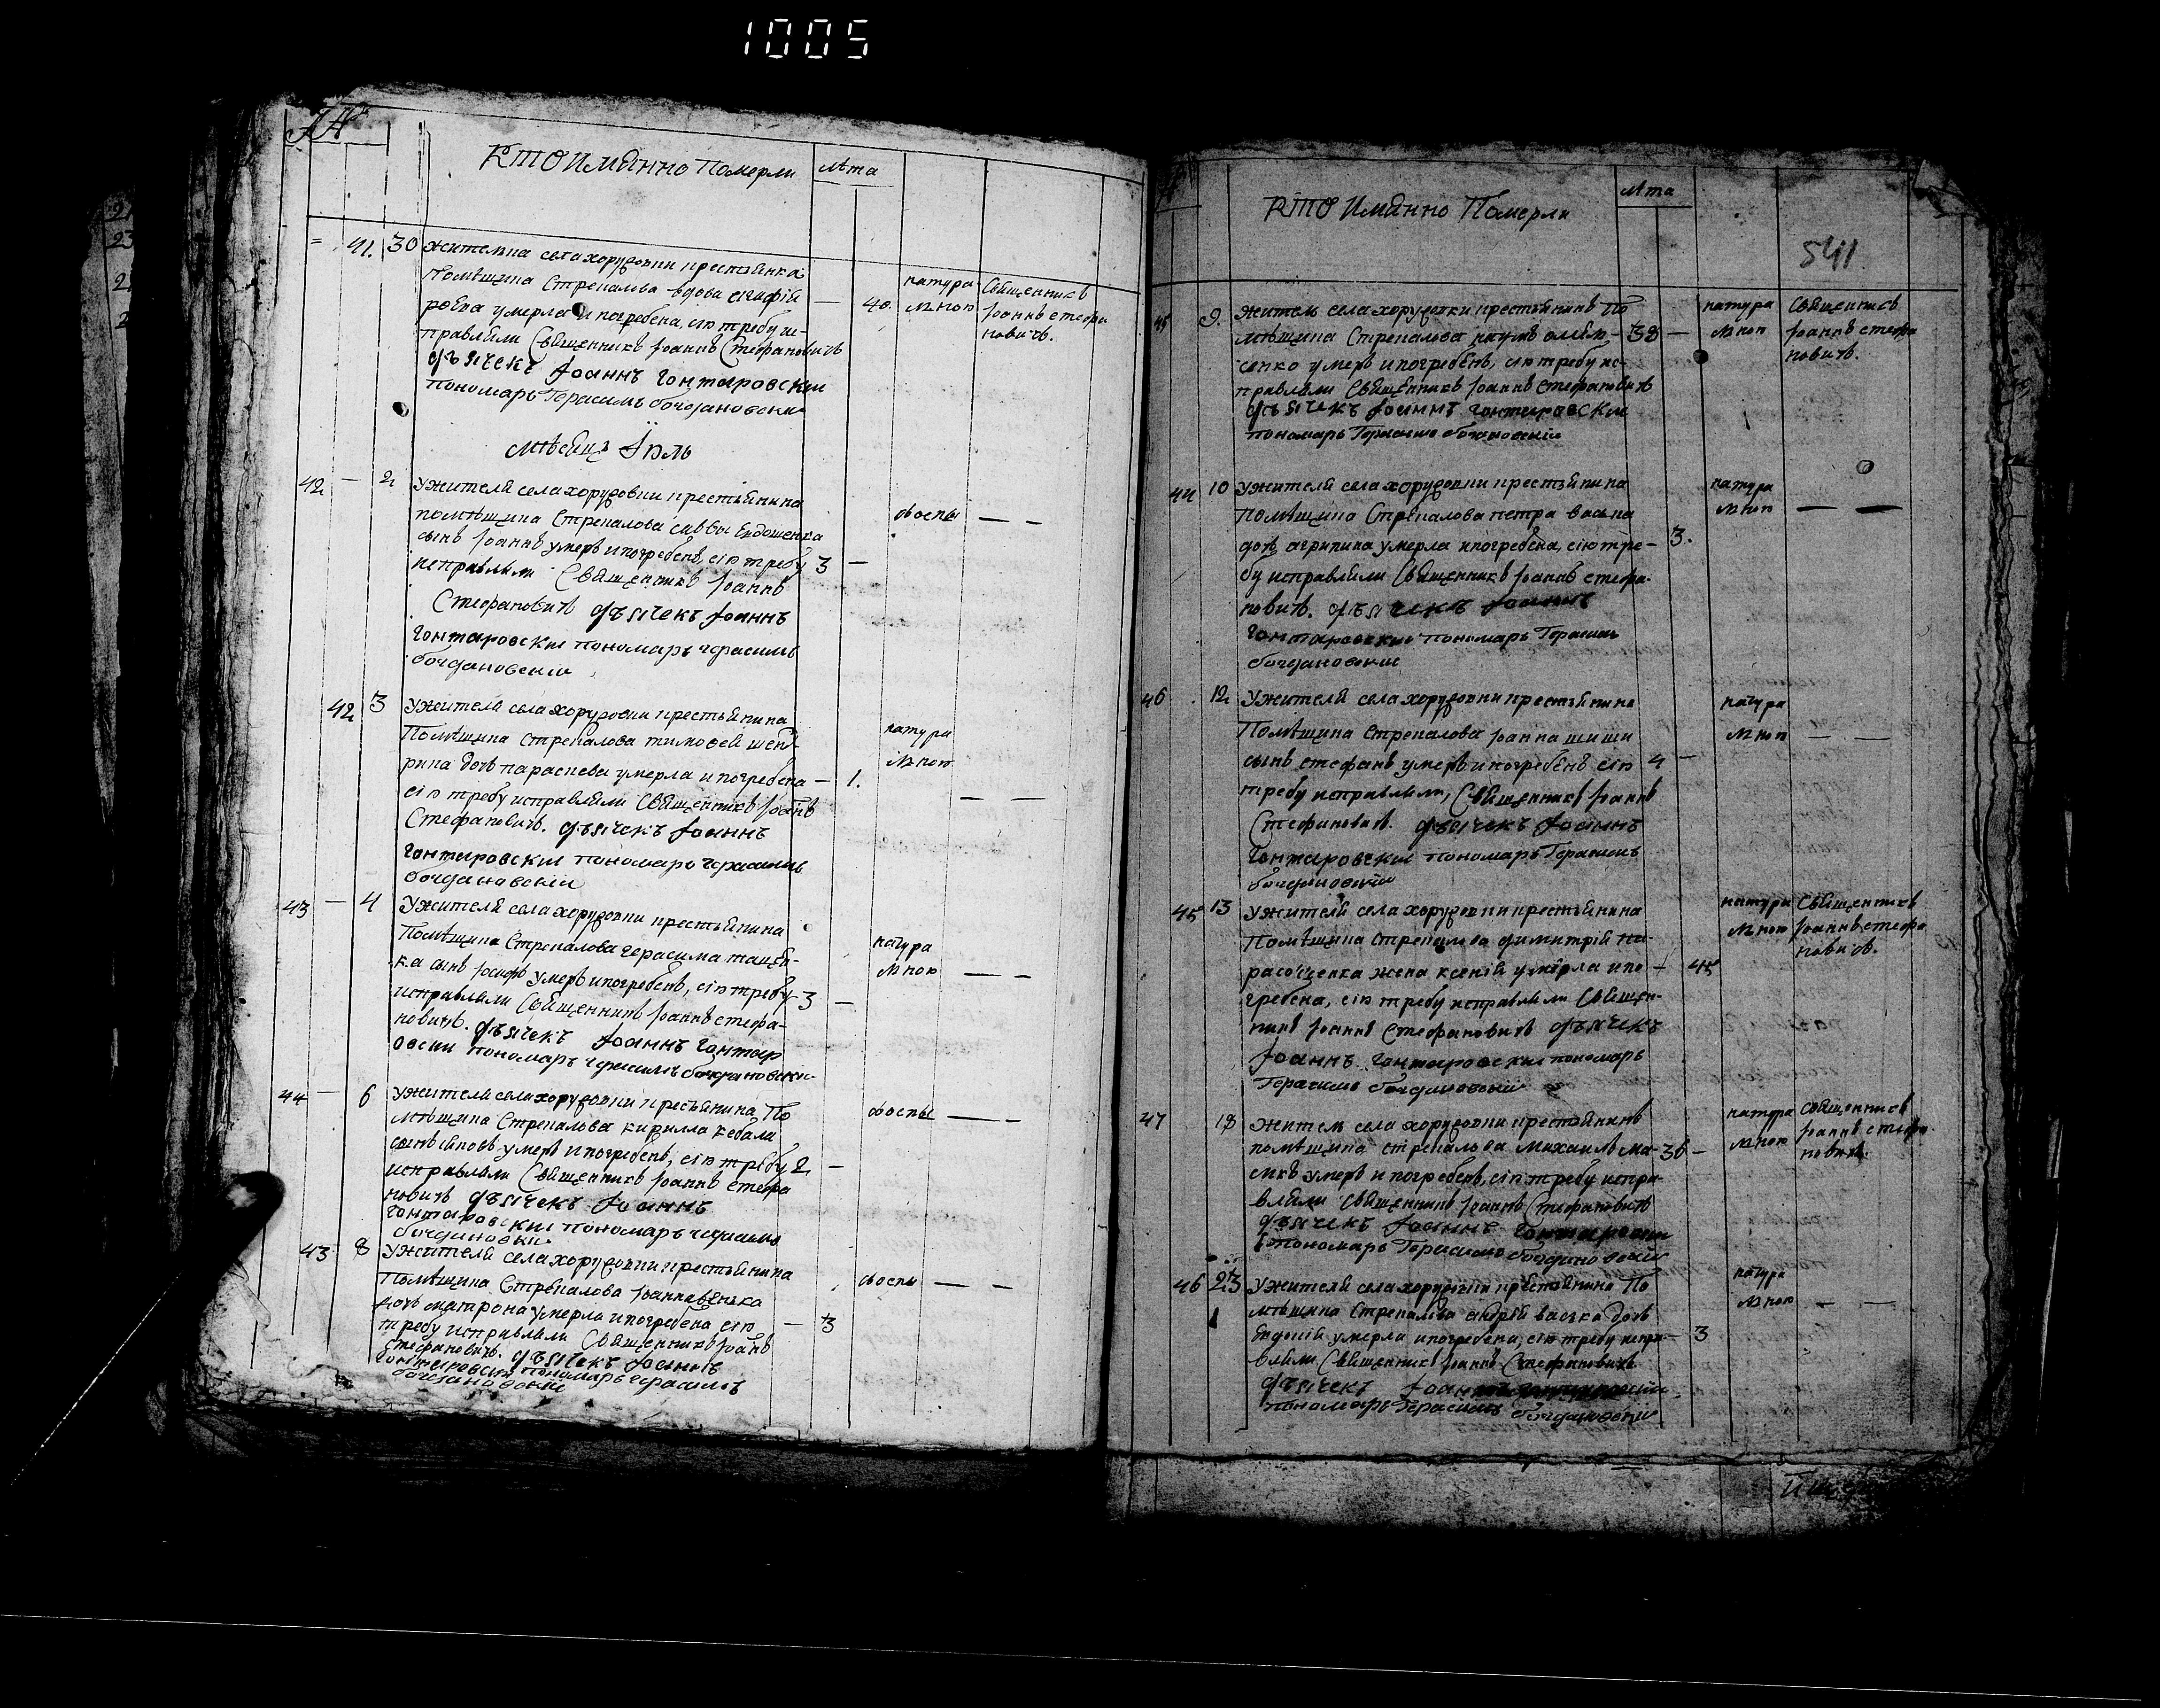 1005
Кто Имянно Померли
Лѣта
41. 30 Жителька села хоружовки крестьянка
Помѣщика Стрекалова вдова
умерла и погребена, сію требу ис-
правляли Священникъ Іоаннъ Стефановичъ
дьячекъ Іоаннъ Гонтаровскии
пономарь Герасимъ богдановски
40.
натура
лною
Священникъ
Іоаннъ стефа
новичъ.
мѣсяцъ Іюль
42 — 2 У жителя села хоружовки крестьянина
помѣщика Стрекалова саввы Евдошенка
сынъ Іоаннъ умеръ и погребенъ, сію требу
исправляли Священникъ Іоаннъ
Стефановичъ дьячекъ Іоаннъ
Гонтаровскии пономарь герасимъ
богдановскіи
3 —
ѿ оспы — —
42 3 У жителя села хоружовки крестьянина
Помѣщика Стрекалова тимофея
дочь параскева умерла и погребена
сію требу исправляли Священникъ Іоаннъ
Стефановичъ. дьячекъ Іоаннъ
Гонтаровскии пономарь герасимъ
богдановскіи
— 1.
натура
лною
— —
43 — 4 У жителя села хоружовки крестьянина
Помѣщика Стрекалова герасима
сынъ Іосифъ умеръ и погребенъ, сію требу
исправляли Священникъ Іоаннъ стефа-
новичъ. дьячекъ Іоаннъ Гонтар
овски пономарь герасимъ богдановски
3 —
натура
лною — —
44 — 6 У жителя села хоружовки крестьянина По
мѣщика Стрекалова кирилла кебали
сынъ умеръ и погребенъ, сію требу
исправляли Священникъ Іоаннъ стефа
новичъ дьячекъ Іоаннъ
Гонтаровскии пономарь герасимъ
богдановскіи
2 —
ѿ оспы — —
43 8 У жителя села хоружовки крестьянина
Помѣщика Стрекалова Іоанна
дочь матрона умерла и погребена сію
требу исправляли Священникъ Іоаннъ
Стефановичъ. дьячекъ Іоаннъ
Гонтаровски пономарь герасимъ
богдановскіи
— 3
ѿ оспы — —
Кто Имянно Померли
Лѣта
541
45 9. Житель села хоружовки крестьянинъ По
мѣщика Стрекалова наумъ
умеръ и погребенъ, сію требу ис-
правляли Священникъ Іоаннъ стефановичъ
дьячекъ Іоаннъ Гонтаровскии
пономарь Герасимъ богдановскіи
38 —
натура
лною
Священникъ
Іоаннъ стефа
новичъ.
44 10 У жителя села хоружовки крестьянина
Помѣщика Стрекалова петра васька
дочь агрипина умерла и погребена, сію тре-
бу исправляли Священникъ Іоаннъ стефа-
новичъ. дьячекъ Іоаннъ
Гонтаровскии пономарь Герасимъ
богдановскіи
3.
натура
лною — —
46 12 У жителя села хоружовки крестьянина
Помѣщика Стрекалова Іоанна шиши
сынъ стефанъ умеръ и погребенъ сію
требу исправляли, Священникъ Іоаннъ
Стефановичъ. дьячекъ Іоаннъ
Гонтаровскии пономарь Герасимъ
богдановскіи
4 —
натура
лною — —
45 13 У жителя села хоружовки крестьянина
Помѣщика Стрекалова димитрія
жена ксенія умерла и по-
гребена, сію требу исправляли Священ-
никъ Іоаннъ Стефановичъ дьячекъ
Іоаннъ Гонтаровскии пономарь
Герасимъ богдановскіи
— 45
натура
лною
Священникъ
Іоаннъ стефа
новичъ.
47 18 Житель села хоружовки крестьянинъ
помѣщика стрекалова михаилъ
умеръ и погребенъ, сію требу испра-
вляли Священникъ Іоаннъ Стефановичъ
дьячекъ Іоаннъ
пономарь Герасимъ богдановскіи
36 —
натура
лною
священникъ
Іоаннъ стефа
новичъ.
46 23 У жителя села хоружовки крестьянина По
мѣщика Стрекалова андрея васька дочь
Евдокія умерла и погребена, сію требу испра-
вляли Священникъ Іоаннъ Стефановичъ
дьячекъ
пономарь Герасимъ богдановскіи
3
натура
лною — —